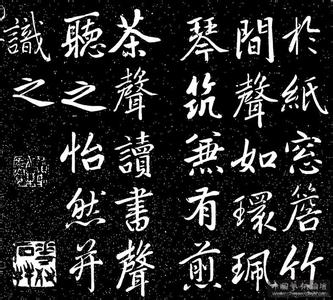 於紙窗簷竹
間聲如環珮
琴筑兼有煎
茶聲讀書聲
聽之怡然并
識之